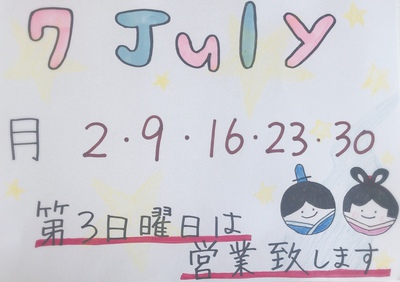 7 July
月 2・9・16・23・30
第3日曜日は
営業致します